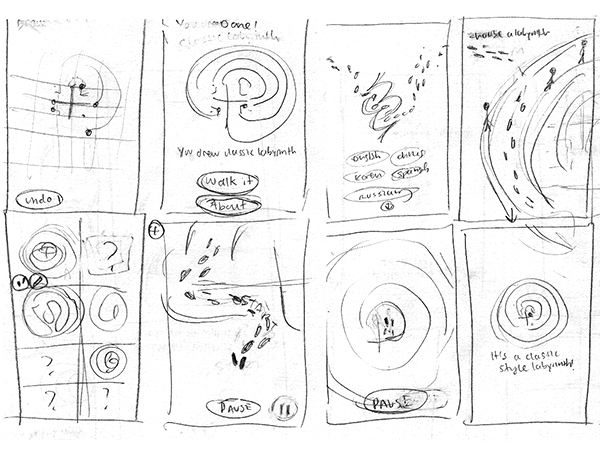 undo!
You Done!
Classic labyrinth
You drew classic labyrinth
Walk it
About
English
Korean
Spanish
Russian
choose a labyrinth
?
?
?
?
START
PAUSE
PAUSE
It's a classic
style labyrinth!